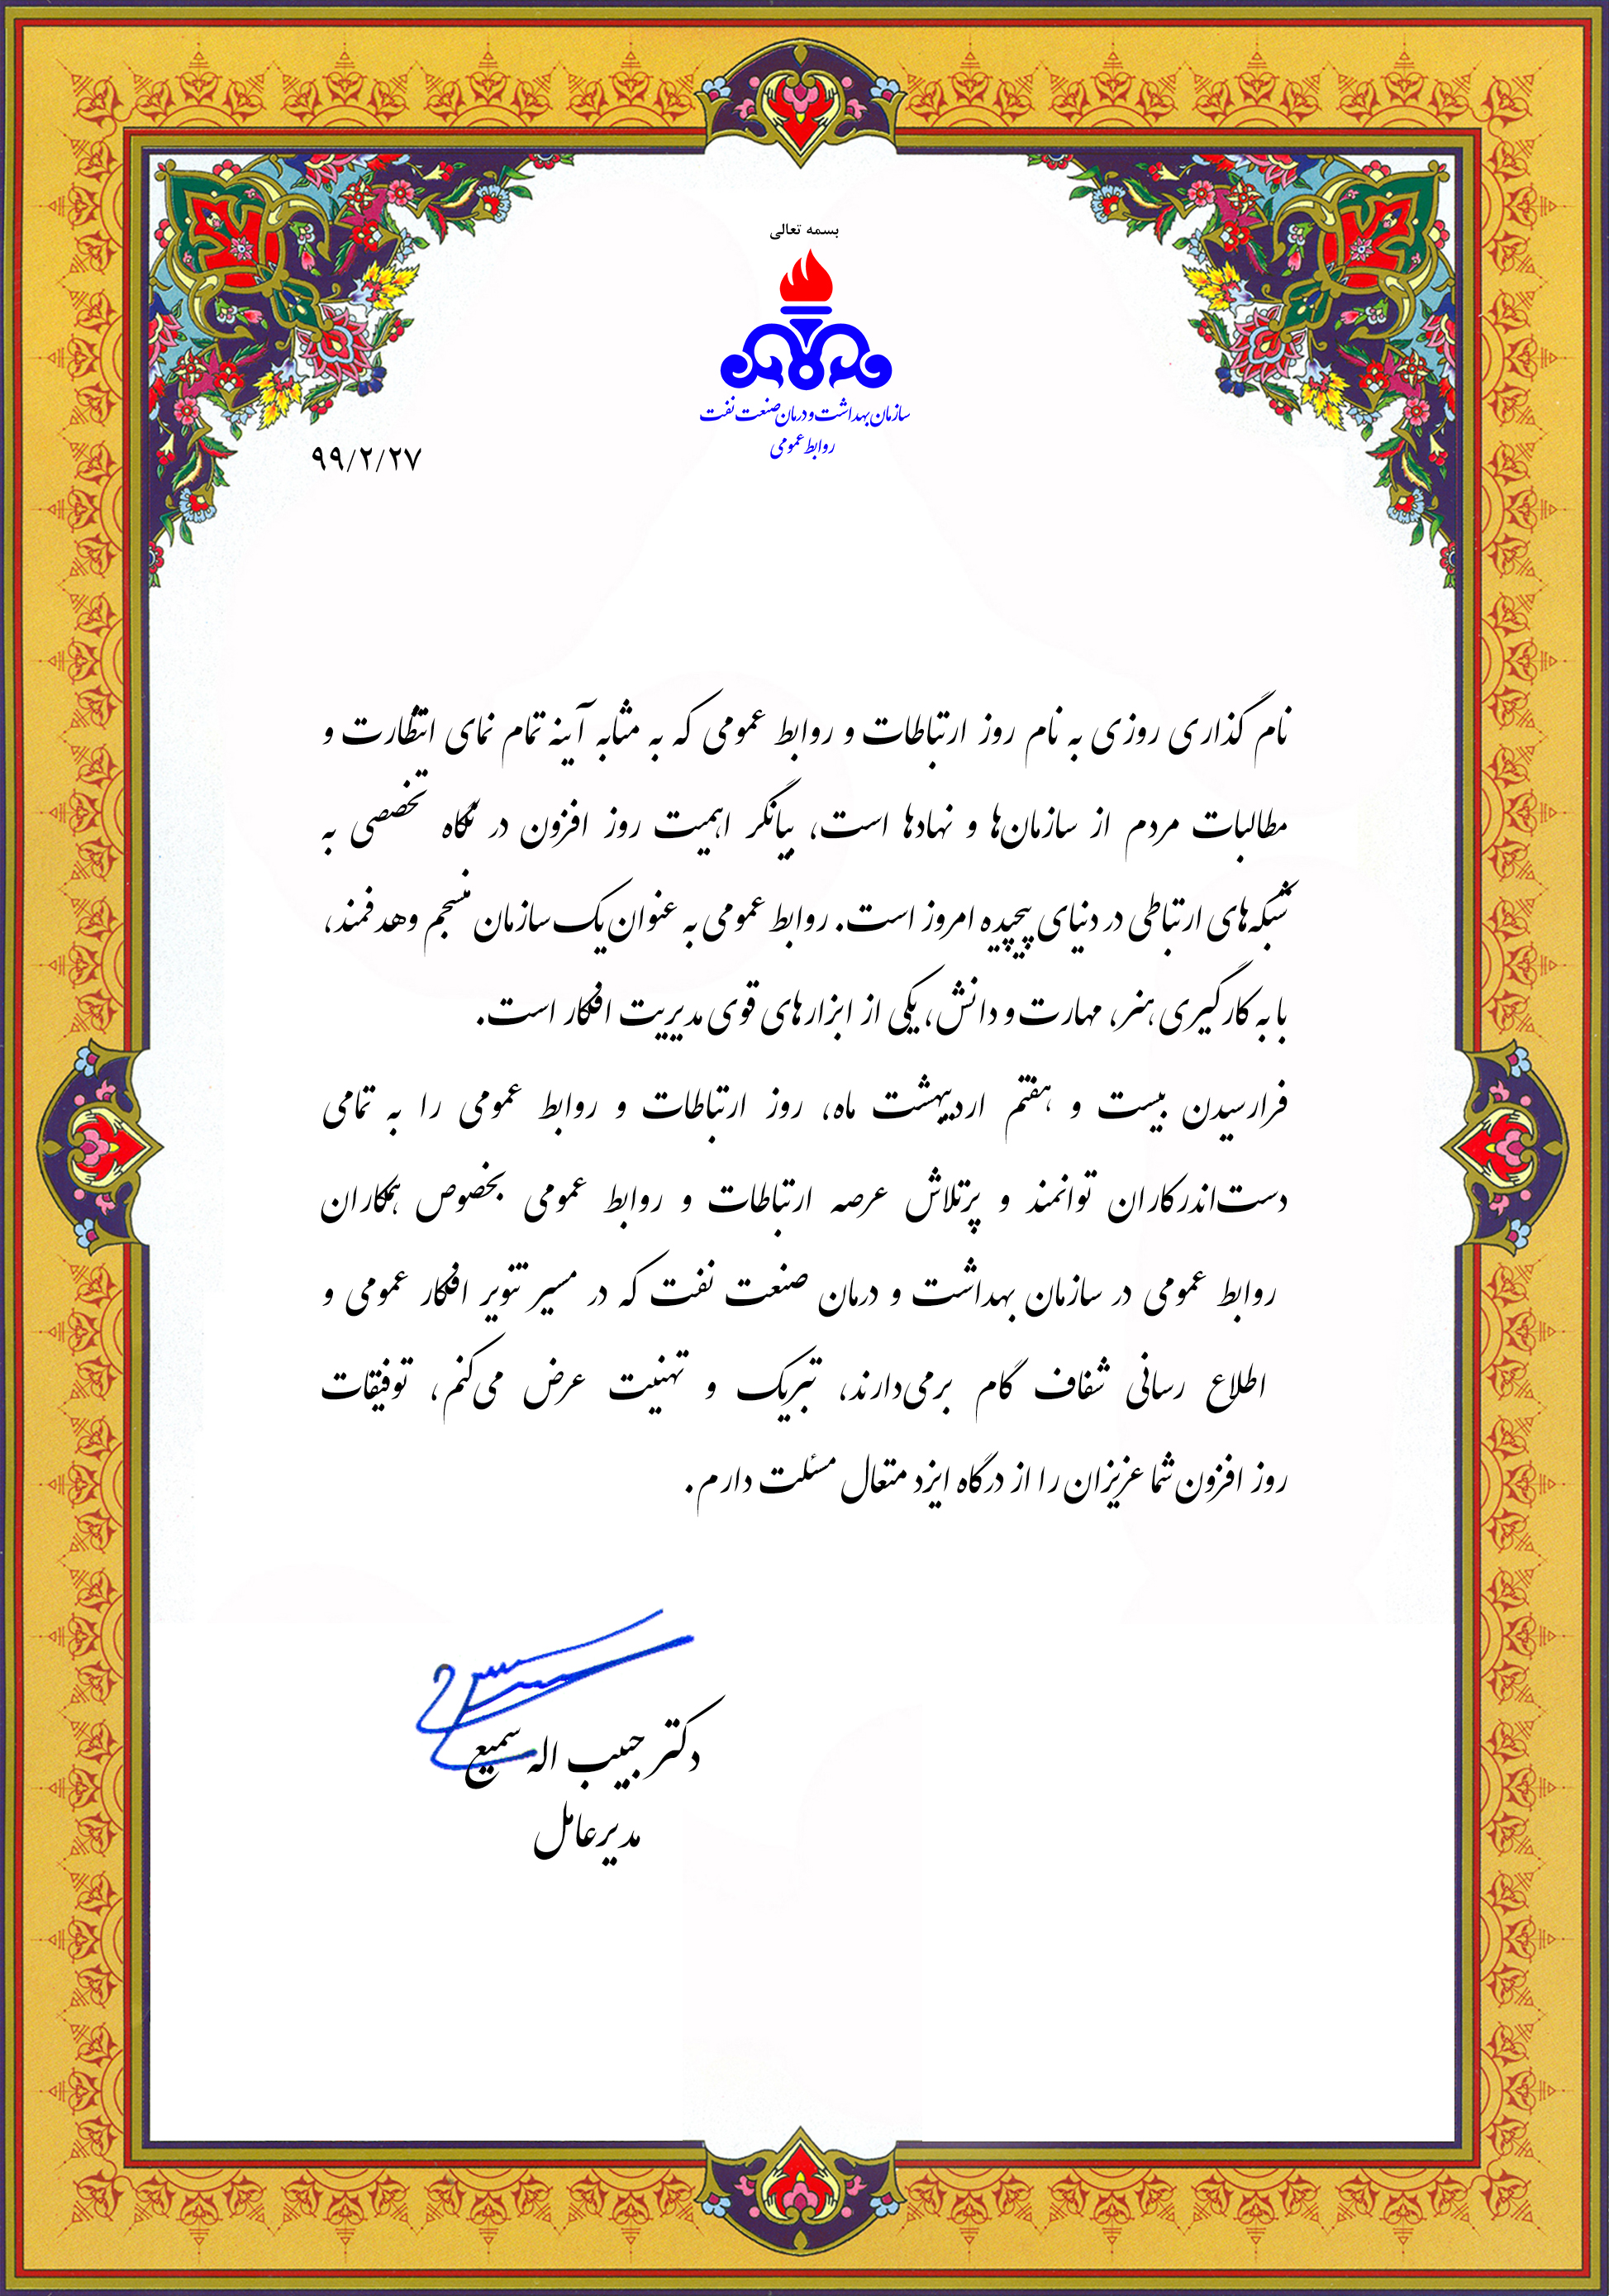 بسمه تعالی
سازمان بهداشت و درمان صنعت نفت
روابط عمومی
۹۹/۲/۲۷
نام گذاری روزی به نام روز ارتباطات و روابط عمومی که به مثابه آینه تمام نمای انتظارت و
مطالبات مردم از سازمان‌ها و نهادها است، بیانگر اهمیت روز افزون در نگاه تخصصی به
شبکه‌های ارتباطی در دنیای پیچیده امروز است. روابط عمومی به عنوان یک سازمان منسجم وهدفمند،
با به کارگیری هنر، مهارت و دانش، یکی از ابزارهای قوی مدیریت افکار است.
فرارسیدن بیست و هفتم اردیبهشت ماه، روز ارتباطات و روابط عمومی را به تمامی
دست‌اندرکاران توانمند و پرتلاش عرصه ارتباطات و روابط عمومی بخصوص همکاران
روابط عمومی در سازمان بهداشت و درمان صنعت نفت که در مسیر تنویر افکار عمومی و
اطلاع رسانی شفاف گام برمی‌دارند، تبریک و تهنیت عرض می‌کنم، توفیقات
روز افزون شما عزیزان را از درگاه ایزد متعال مسئلت دارم.
دکتر حبیب اله سمیع
مدیرعامل